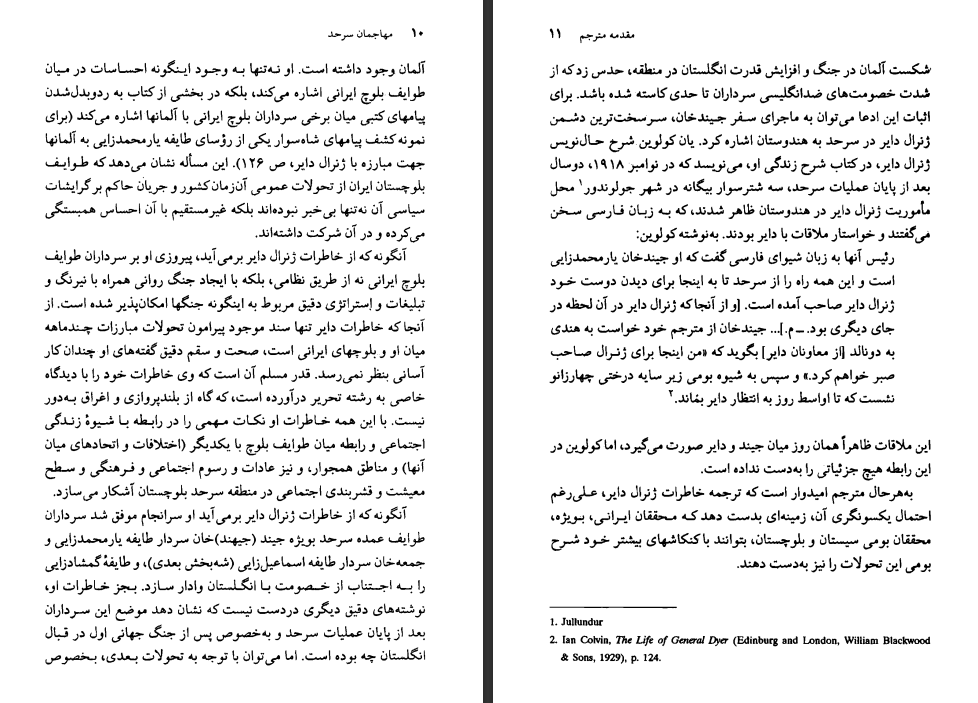 ۱۰ مهاجمان سرحد
آلمان وجود داشته است. او نه‌تنها به وجود اینگونه احساسات در میان
طوایف بلوچ ایرانی اشاره می‌کند، بلکه در بخشی از کتاب به ردوبدل‌شدن
پیامهای کتبی میان برخی سرداران بلوچ ایرانی با آلمانها اشاره می‌کند (برای
نمونه کشف پیامهای شاه‌سوار یکی از رؤسای طایفه یارمحمدزایی به آلمانها
جهت مبارزه با ژنرال دایر، ص ۱۲۶). این مسأله نشان می‌دهد که طوایف
بلوچستان ایران از تحولات عمومی آن‌زمان کشور و جریان حاکم بر گرایشات
سیاسی آن نه‌تنها بی‌خبر نبوده‌اند بلکه غیرمستقیم با آن احساس همبستگی
می‌کرده و در آن شرکت داشته‌اند.
آنگونه که از خاطرات ژنرال دایر برمی‌آید، پیروزی او بر سرداران طوایف
بلوچ ایرانی نه از طریق نظامی، بلکه با ایجاد جنگ روانی همراه با نیرنگ و
تبلیغات و إستراتژی دقیق مربوط به اینگونه جنگها امکان‌پذیر شده است. از
آنجا که خاطرات دایر تنها سند موجود پیرامون تحولات مبارزات چندماهه
میان او و بلوچهای ایرانی است، صحت و سقم دقیق گفته‌های او چندان کار
آسانی بنظر نمی‌رسد. قدر مسلم آن است که وی خاطرات خود را با دیدگاه
خاصی به رشته تحریر درآورده است، که گاه از بلندپروازی و اغراق به‌دور
نیست. با این همه خاطرات او نکات مهمی را در رابطه با شیوهٔ زندگی
اجتماعی و رابطه میان طوایف بلوچ با یکدیگر (اختلافات و اتحادهای میان
آنها) و مناطق همجوار، و نیز عادات و رسوم اجتماعی و فرهنگی و سطح
معیشت و قشربندی اجتماعی در منطقه سرحد بلوچستان آشکار می‌سازد.
آنگونه که از خاطرات ژنرال دایر برمی‌آید او سرانجام موفق شد سرداران
طوایف عمده سرحد بویژه جیند (جیهند)خان سردار طایفه یارمحمدزایی و
جمعه‌خان سردار طایفه اسماعیل‌زایی (شه‌بخش بعدی)، و طایفهٔ گمشادزایی
را به اجتناب از خصومت با انگلستان وادار سازد. بجز خاطرات او،
نوشته‌های دقیق دیگری دردست نیست که نشان دهد موضع این سرداران
بعد از پایان عملیات سرحد و به‌خصوص پس از جنگ جهانی اول در قبال
انگلستان چه بوده است. اما می‌توان با توجه به تحولات بعدی، بخصوص
مقدمه مترجم ۱۱
شکست آلمان در جنگ و افزایش قدرت انگلستان در منطقه، حدس زد که از
شدت خصومت‌های ضدانگلیسی سرداران تا حدی کاسته شده باشد. برای
اثبات این ادعا می‌توان به ماجرای سفر جیندخان، سرسخت‌ترین دشمن
ژنرال دایر در سرحد به هندوستان اشاره کرد. یان کولوین شرح حال‌نویس
ژنرال دایر، در کتاب شرح زندگی او، می‌نویسد که در نوامبر ۱۹۱۸، دوسال
بعد از پایان عملیات سرحد، سه شترسوار بیگانه در شهر جولوندور۱ محل
مأموریت ژنرال دایر در هندوستان ظاهر شدند، که به زبان فارسی سخن
می‌گفتند و خواستار ملاقات با دایر بودند. به‌نوشته کولوین:
رئیس آنها به زبان شیوای فارسی گفت که او جیندخان یارمحمدزایی
است و این همه راه را از سرحد تا به اینجا برای دیدن دوست خود
ژنرال دایر صاحب آمده است. [و از آنجا که ژنرال دایر در آن لحظه در
جای دیگری بود. ــ م.]... جیندخان از مترجم خود خواست به هندی
به دونالد [از معاونان دایر] بگوید که «من اینجا برای ژنرال صاحب
صبر خواهم کرد.» و سپس به شیوه بومی زیر سایه درختی چهارزانو
نشست که تا اواسط روز به انتظار دایر بماند.۲
این ملاقات ظاهراً همان روز میان جیند و دایر صورت می‌گیرد، اما کولوین در
این رابطه هیچ جزئیاتی را به‌دست نداده است.
به‌هرحال مترجم امیدوار است که ترجمه خاطرات ژنرال دایر، علی‌رغم
احتمال یکسونگری آن، زمینه‌ای بدست دهد که محققان ایرانی، بویژه،
محققان بومی سیستان و بلوچستان، بتوانند با کنکاشهای بیشتر خود شرح
بومی این تحولات را نیز به‌دست دهند.
1. Jullundur
2. Ian Colvin, The Life of General Dyer (Edinburg and London, William Blackwood
& Sons, 1929), p. 124.